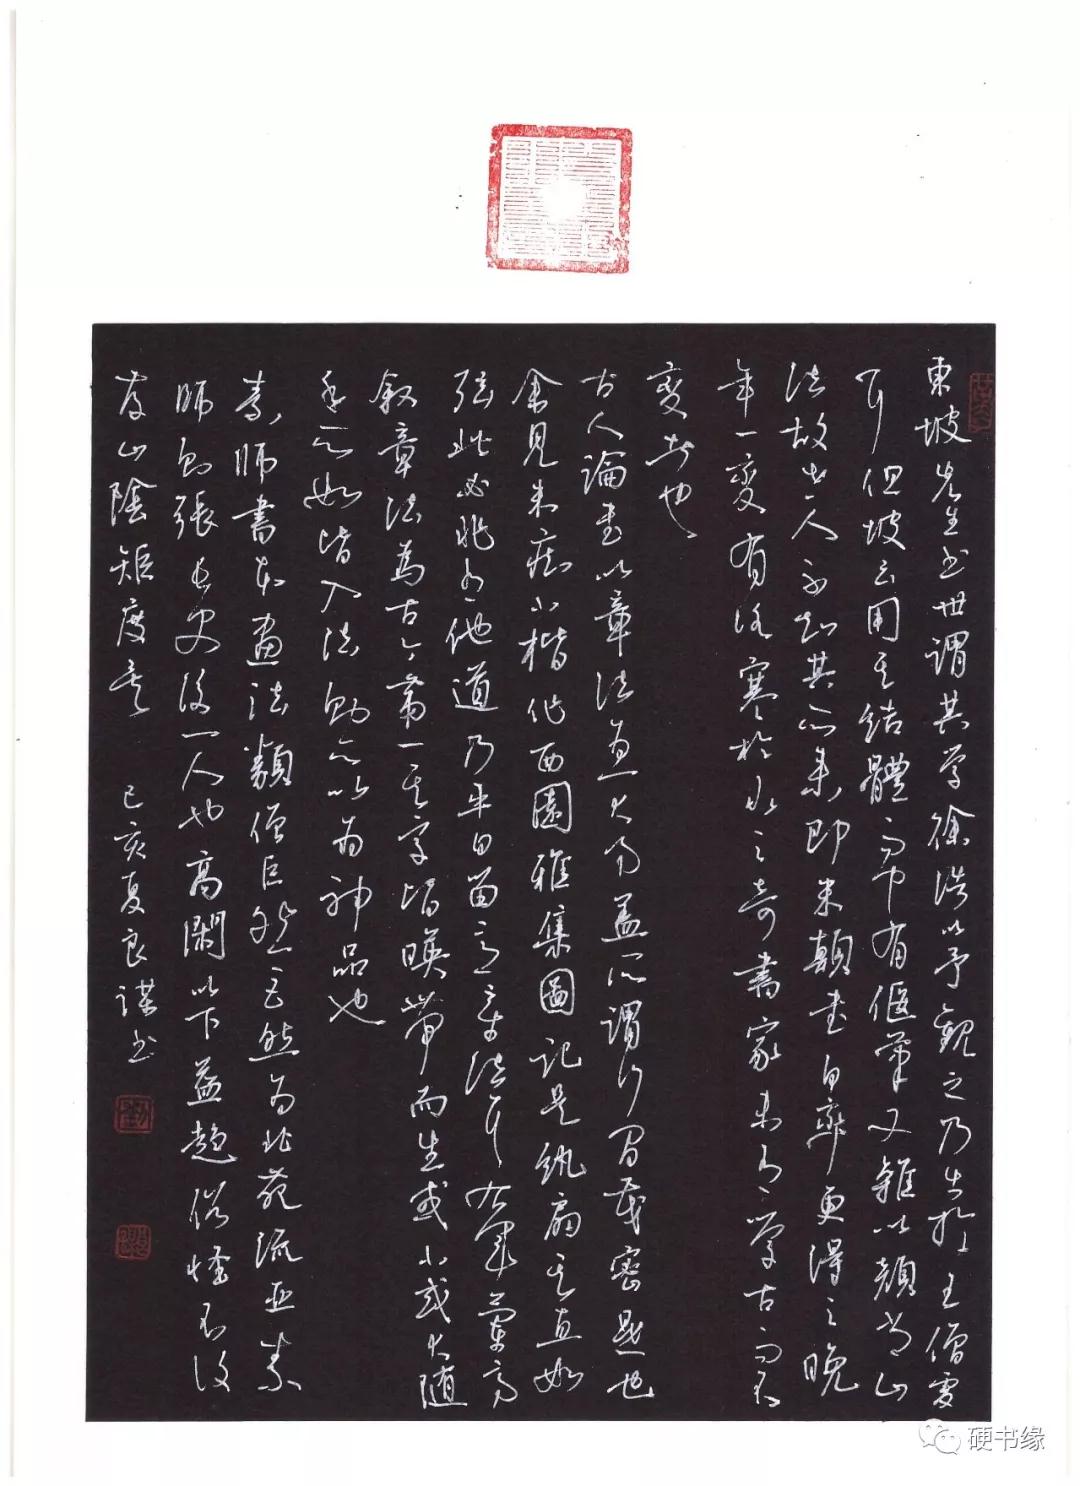 東坡先生書世謂其學徐浩以予觀之乃出於王僧虔
耳但坡云用其結體而中有偃筆又雜以顏常山
法故世人不知其所來即米顛書自率更得之晚
年一變有冰寒於水之奇書家未有學古而不
變者也
古人論書以章法為一大事蓋所謂行間茂密是也
余見米痴小楷作西園雅集圖記是紈扇其直如
弦此必非有他道乃平日留意章法耳右軍蘭亭
敘章法為古今第一其字皆映帶而生或小或大隨
手所如皆入法則所以為神品也
素師書本畫法類僧巨然巨然為北苑流亞素
師則張長史後一人也高閑以下益趨俗怪不復
存山陰矩度矣 己亥夏良謀書
硬书缘